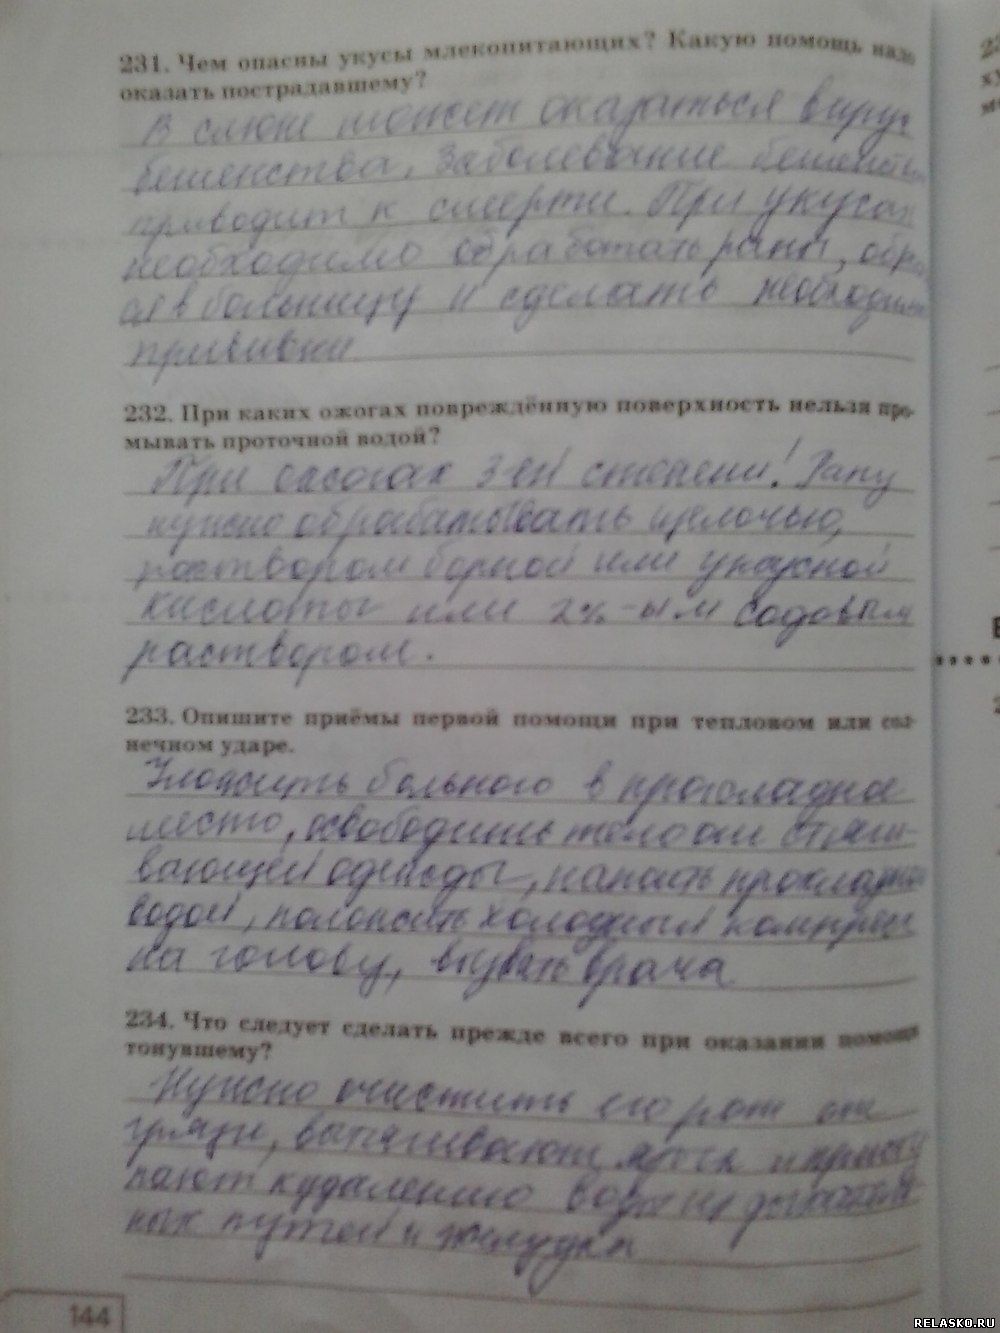 231. Чем опасны укусы млекопитающих? Какую помощь надо
оказать пострадавшему?
В слюне может оказаться вирус
бешенства. Заболевание
приводит к смерти. При укусах
необходимо обработать раны,
в больницу и сделать необходимые
прививки
232. При каких ожогах повреждённую поверхность нельзя про-
мывать проточной водой?
При ожогах 3-ей степени! Рану
нужно обрабатывать щелочью,
раствором борной или уксусной
кислоты или 2%-ым содовым
раствором.
233. Опишите приёмы первой помощи при тепловом или сол-
нечном ударе.
Уложить больного в прохладное
место, освободить тело от стяги-
вающей одежды, прохладной
водой, положить холодный компресс
на голову, вызвать врача
234. Что следует сделать прежде всего при оказании помощи
тонувшему?
Нужно очистить его рот от
грязи, вытягивают язык и присту
пают к удалению воды из дыхатель
ных путей и желудка
144
RELASKO.RU